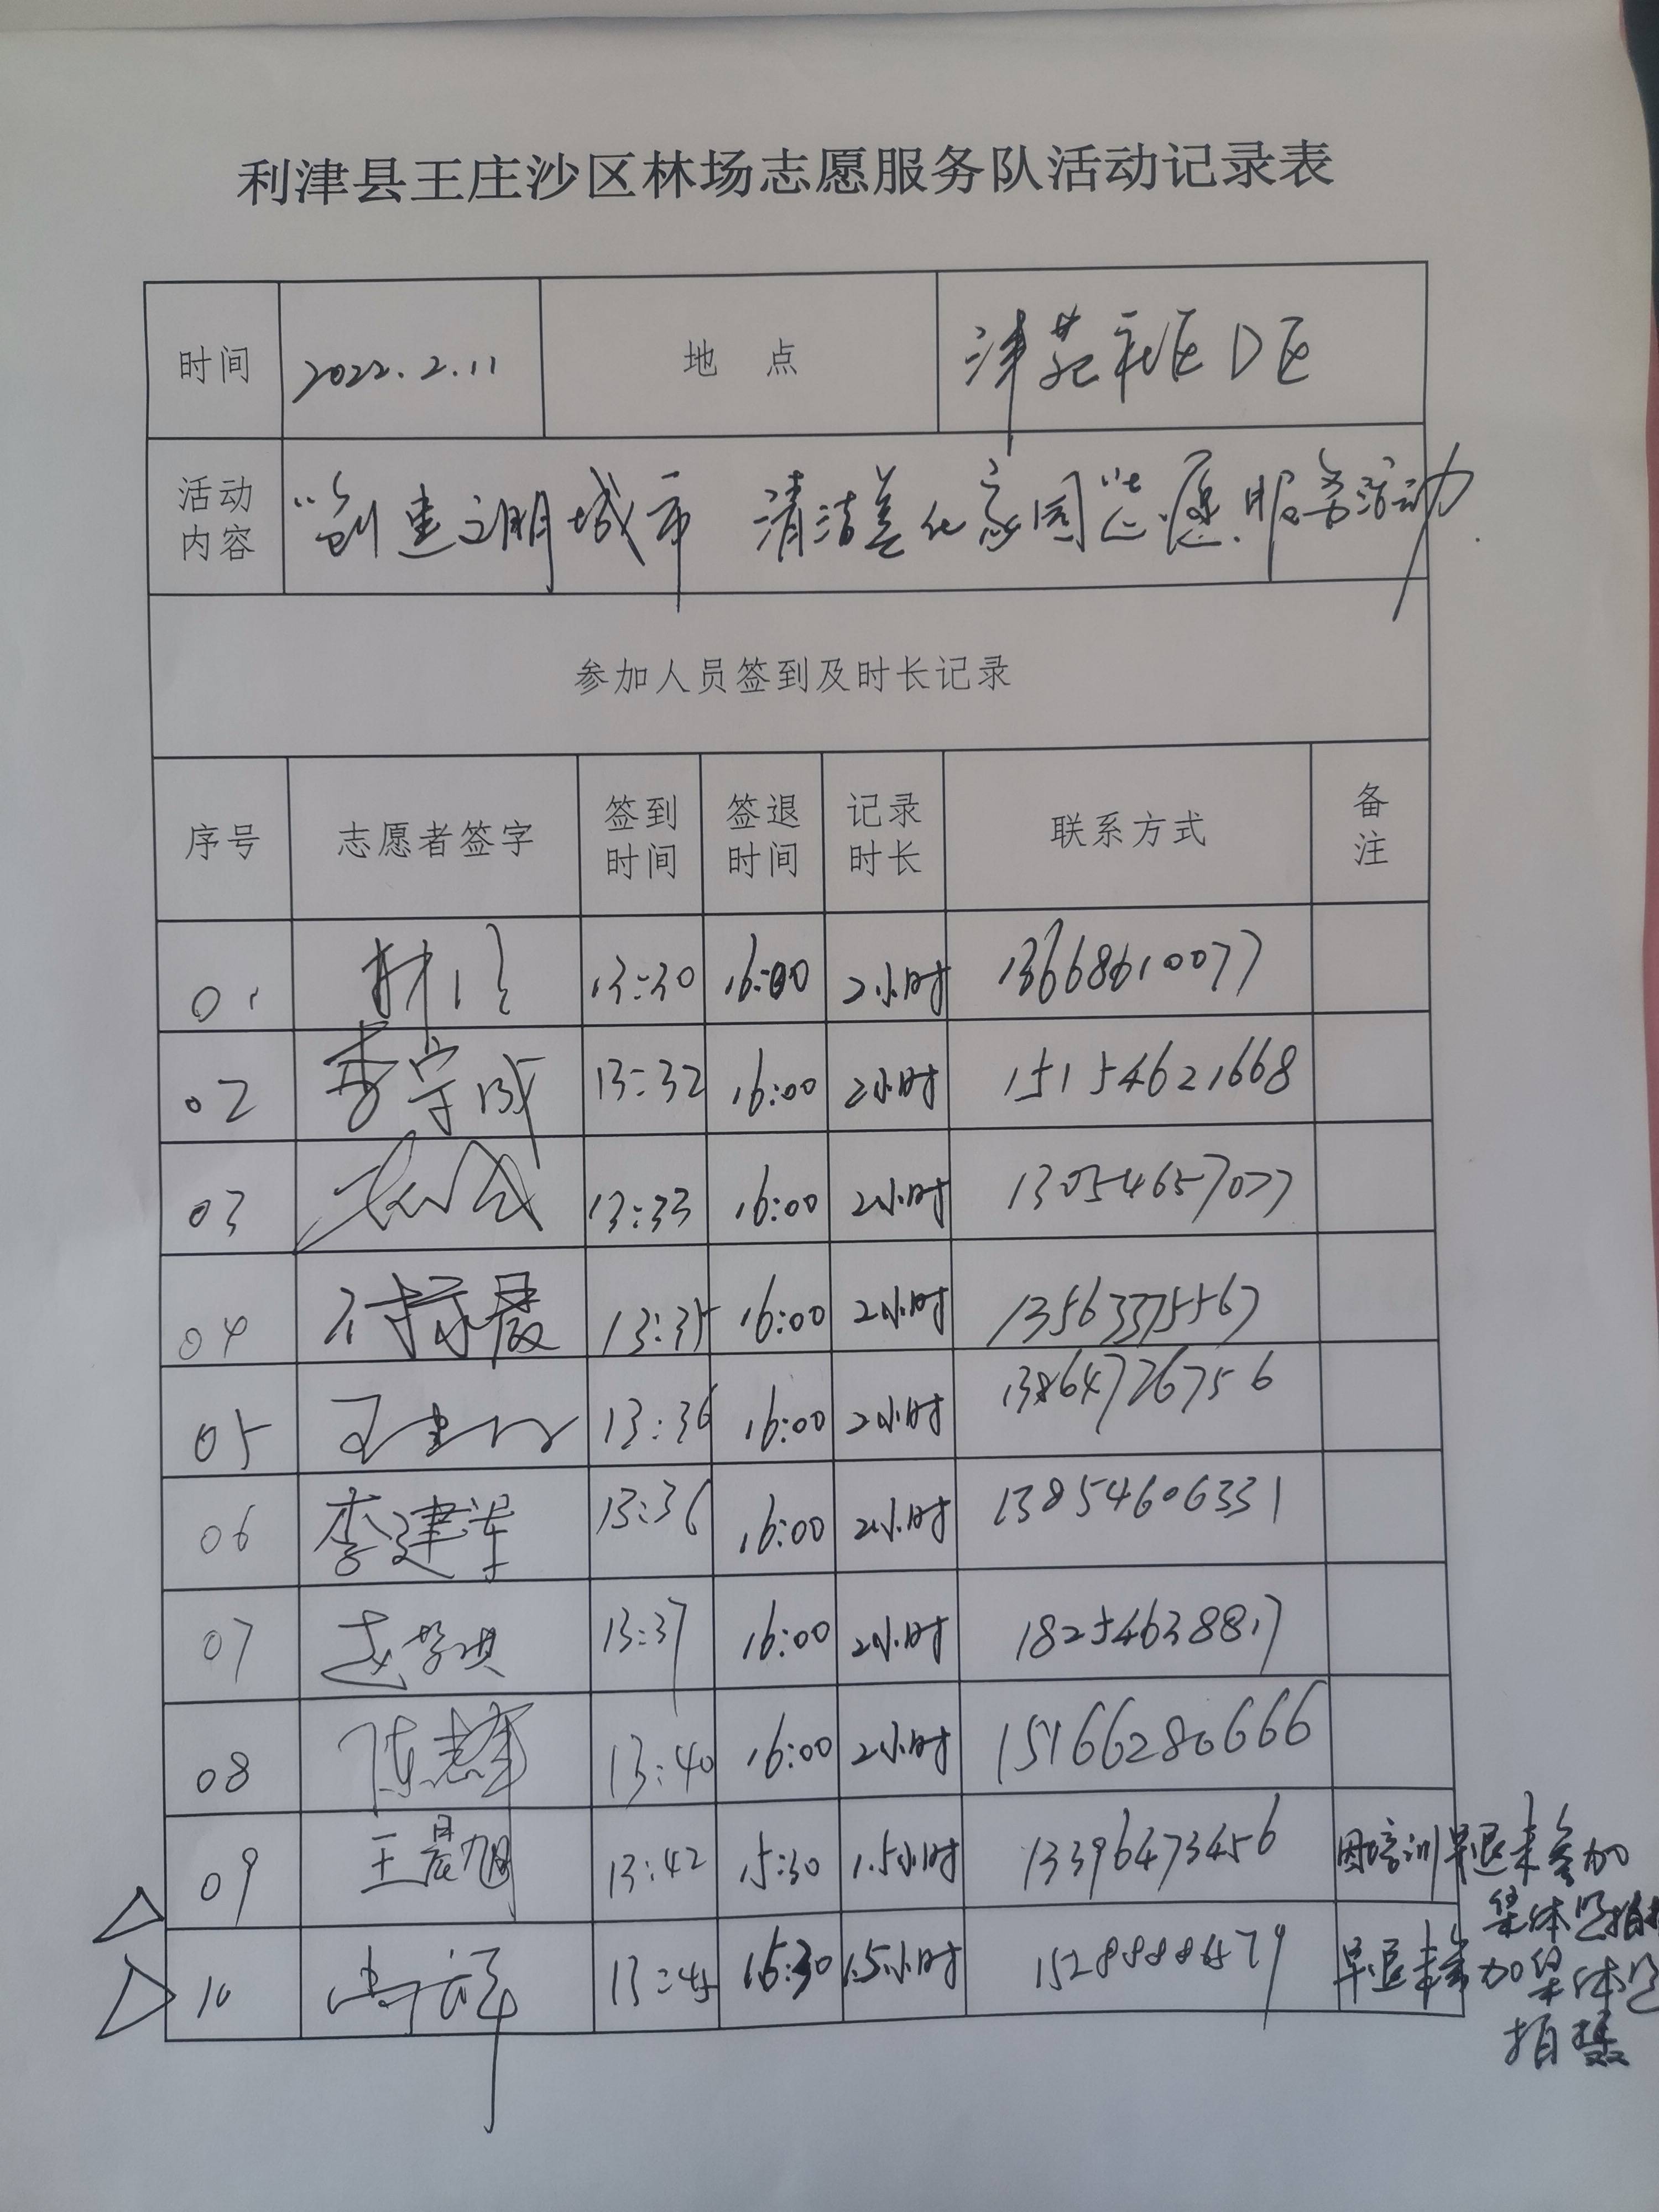 利津县王庄沙区林场志愿服务队活动记录表
时间 2022.2.11 地 点 津苑社区D区
活动内容 “创建文明城市 清洁美化家园”志愿服务活动.
参加人员签到及时长记录
序号 志愿者签字 签到时间 签退时间 记录时长 联系方式 备注
01 13:30 16:00 2小时 13668610077
02 李守成 13:32 16:00 2小时 15154621668
03 13:33 16:00 2小时 13054657077
04 13:35 16:00 2小时 13563375567
05 13:36 16:00 2小时 13864726756
06 李建军 13:36 16:00 2小时 13854606331
07 13:37 16:00 2小时 18254638817
08 陈志军 13:40 16:00 2小时 15166280666
09 王晨旭 13:42 15:30 1.5小时 13396473456 因培训早退未参加
集体照拍摄
10 13:45 15:30 1.5小时 15288888479 早退未参加集体照
拍摄